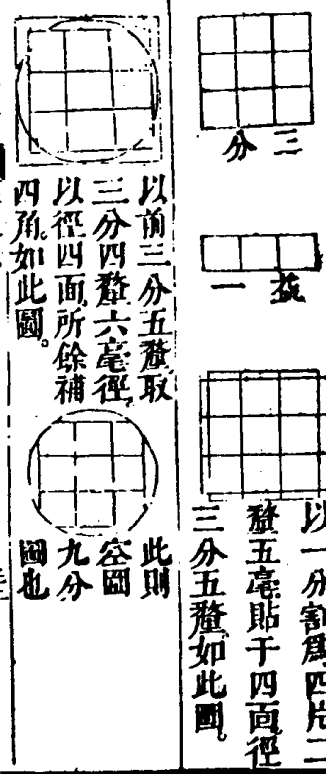 三分
益一
以一分割爲四片二
釐五毫貼于四面徑
三分五釐如此圖。
以前三分五釐取
三分四釐六毫徑。
以徑四面所餘補
四角。如此圖。
此則
空圍
九分
圖也